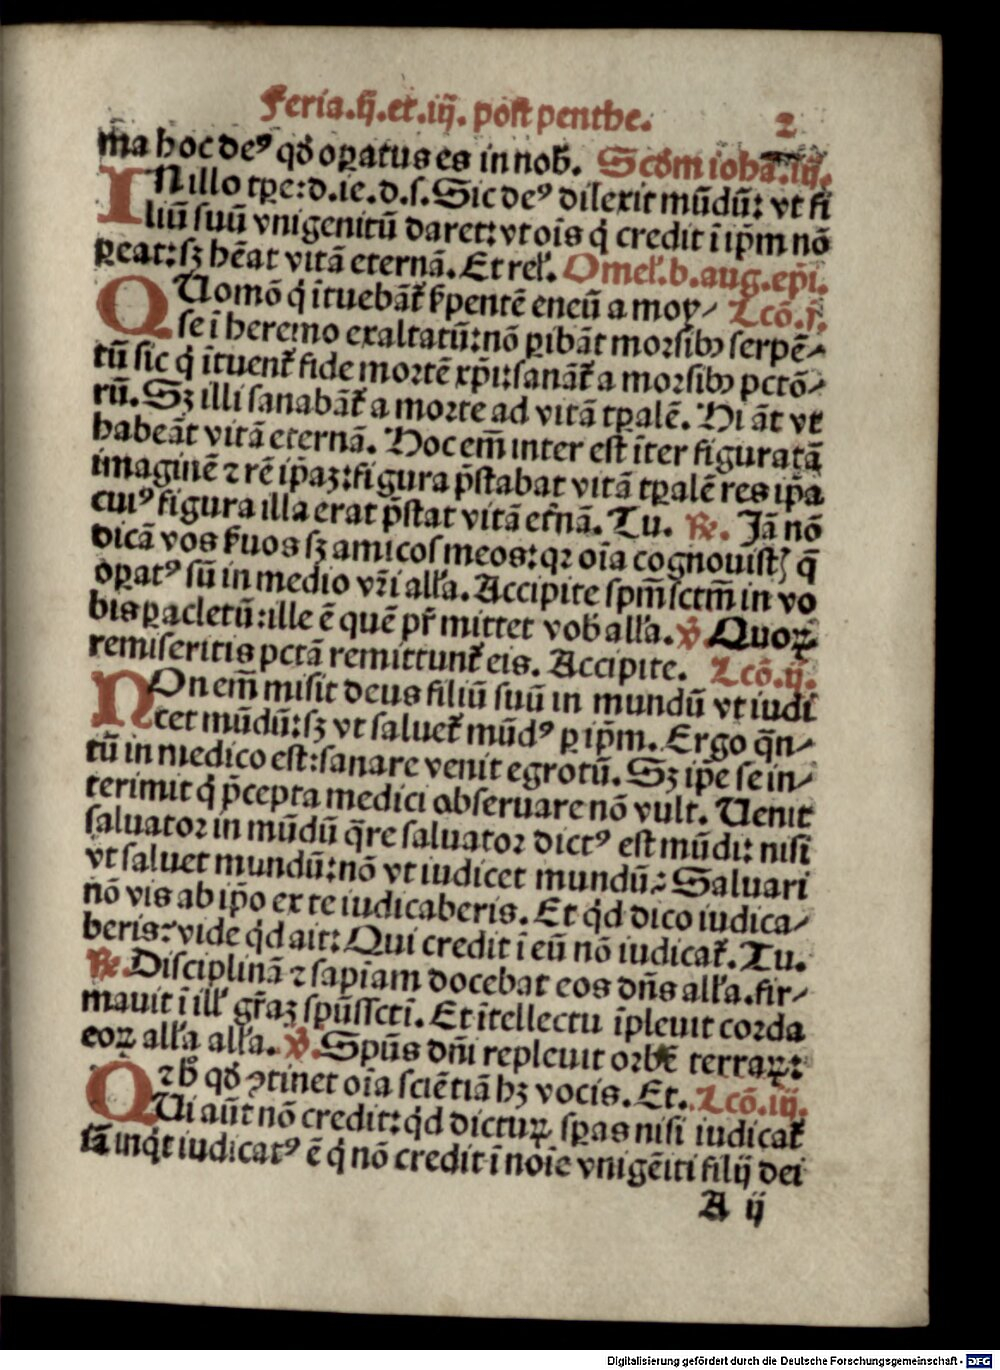 Feria.ij.et.iij. post penthe. 2
ma hoc deꝰ qđ oꝑatus es in nob̄. Scđm iohā.iij.
IN illo tꝑe: d.ie.d.s. Sic deꝰ dilexit mūdū: vt fi
liū suū vnigenitū daret: vt oīs q̇ credit ī ip̄m nō
ꝑeat: sꝫ hēat vitā eternā. Et rel̄. Omel̄.b.aug.ep̄i.
QUomō q̇ ītuebāt᷑ ẜpentē eneū a moy⸗ Lcō.j.
se ī heremo exaltatū: nō ꝑibāt morsibꝫ serpē⸗
tū sic q̇ ītuent᷑ fide mortē xp̄i: sanāt᷑ a morsibꝫ pctō⸗
rū. Sꝫ illi sanabāt᷑ a morte ad vitā tꝑalē. Hi āt vt
habeāt vitā eternā. Hoc em̄ inter est īter figuratā
imaginē ⁊ rē ip̄aꝫ: figura p̄stabat vitā tꝑalē res ip̄a
cuiꝰ figura illa erat p̄stat vitā et̄nā. Tu. ℟. Jā nō
dicā vos ẜuos sꝫ amicos meos: qꝛ oīa cognouist᷑ q̄
oꝑatꝰ sū in medio vr̄i all̄a. Accipite spm̄ sctm̄ in vo
bis ꝑacletū: ille ē quē pr̄ mittet vob̄ all̄a. ℣ Quoꝝ
remiseritis pctā remittunt᷑ eis. Accipite. Lcō.ij.
NOn em̄ misit deus filiū suū in mundū vt iudi
cet mūdū: sꝫ vt saluet᷑ mūdꝰ ꝑ ip̄m. Ergo q̄n⸗
tū in medico est: sanare venit egrotū. Sꝫ ip̄e se in⸗
terimit q̇ p̄cepta medici obseruare nō vult. Uenit
saluator in mūdū q̄re saluator dictꝰ est mūdi: nisi
vt saluet mundū: nō vt iudicet mundū: Saluari
nō vis ab ip̄o ex te iudicaberis. Et q̇d dico iudica⸗
beris: vide q̇d ait: Qui credit ī eū nō iudicat᷑. Tu.
℟. Disciplinā ⁊ sapīam docebat eos dn̄s all̄a. fir⸗
mauit ī ill̄ gr̄aꝫ spūs sctī. Et ītellectu īpleuit corda
eoꝝ all̄a all̄a. ℣. Spūs dn̄i repleuit orbē terraꝝ:
⁊ h̄ qđ ꝯtinet oīa sciētiā hꝫ vocis. Et. Lcō.iij.
QUi aūt nō credit: q̇d dictuꝝ sꝑas nisi iudicat᷑
iā inq̇t iudicatꝰ ē q̇ nō credit ī noīe vnigēiti filij dei
A ij
Digitalisierung gefördert durch die Deutsche Forschungsgemeinschaft - DFG